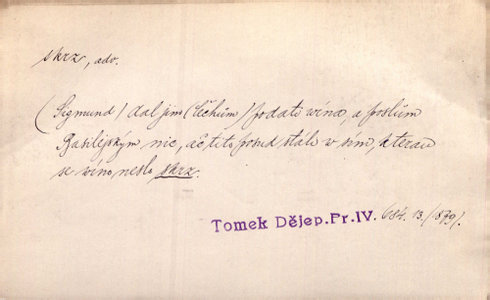 skrz, adv.
(Sigmund) dal jim (Čechům) podati vína, a poslům
Basilejským nic, ač tito posud stáli w síni, kterau
se víno neslo skrz.
Tomek Dějep.Pr.IV. 684. 13. (1879).